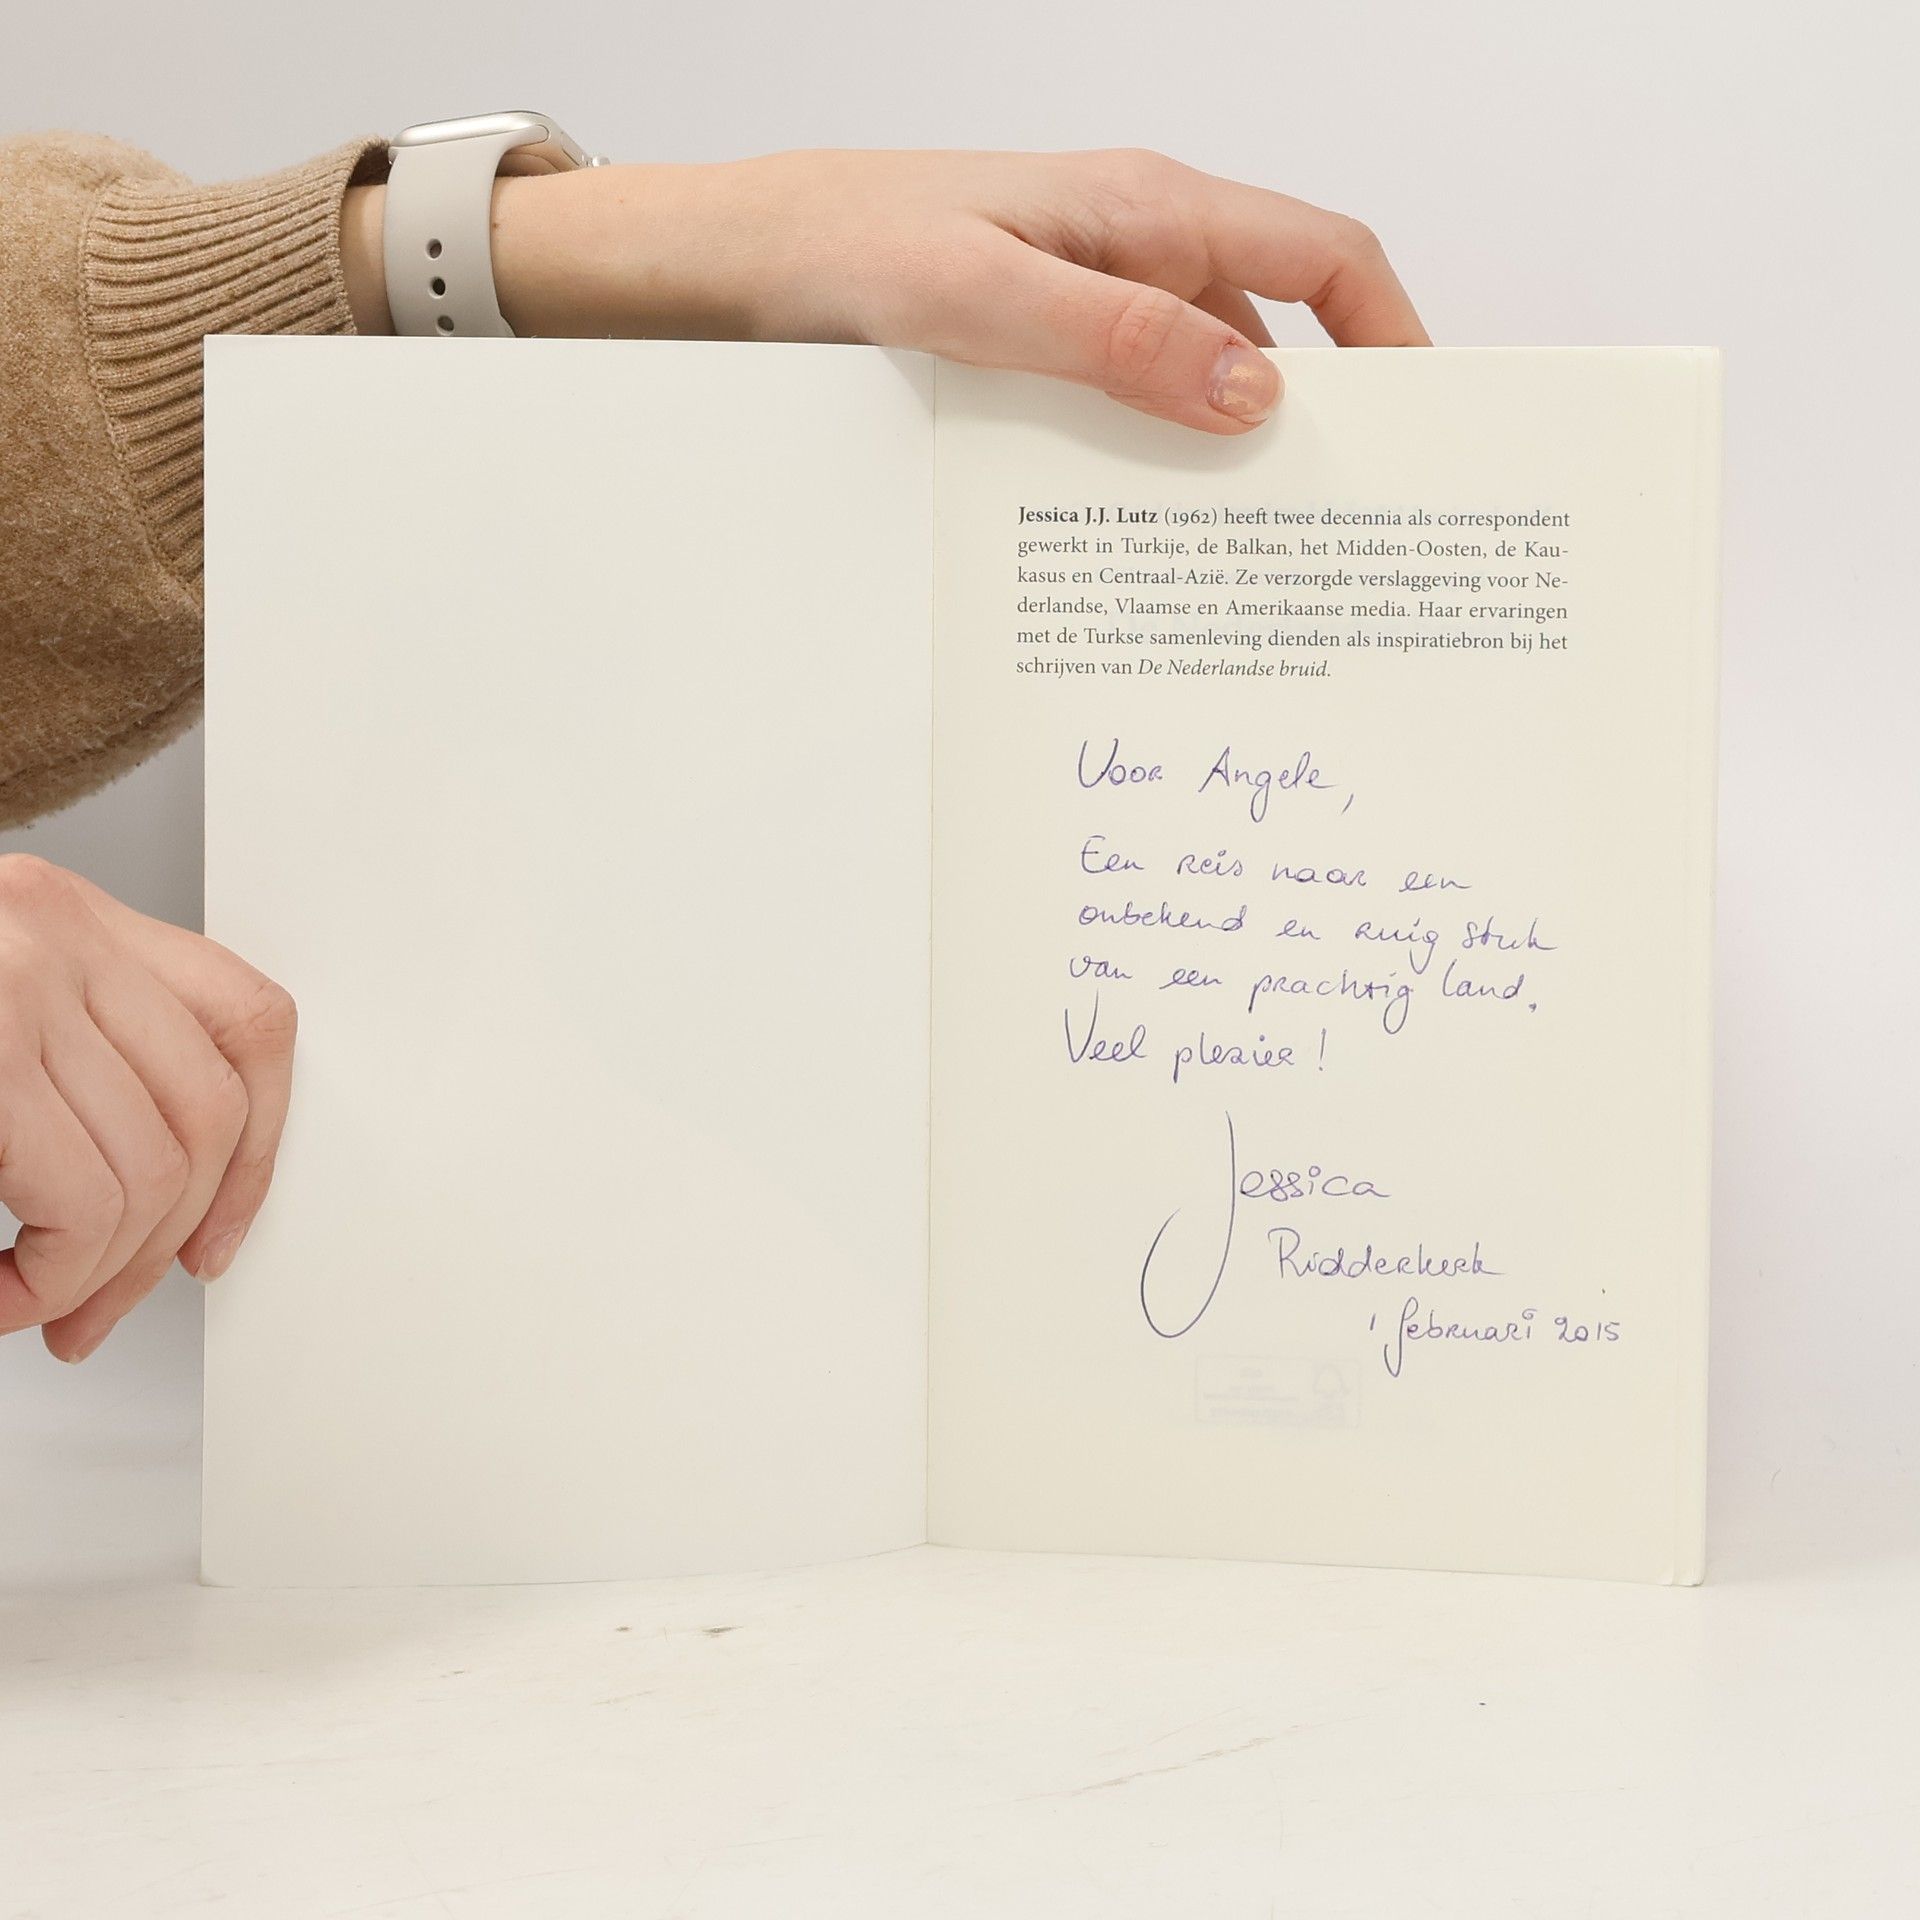 Jessica J.J. Lutz (1962) heeft twee decennia als correspondent
gewerkt in Turkije, de Balkan, het Midden-Oosten, de Kau-
kasus en Centraal-Azië. Ze verzorgde verslaggeving voor Ne-
derlandse, Vlaamse en Amerikaanse media. Haar ervaringen
met de Turkse samenleving dienden als inspiratiebron bij het
schrijven van De Nederlandse bruid.
Voor Angele,
Een reis naar een
onbekend en ruig stuk
van een prachtig land.
Veel plezier!
Jessica
Ridderkerk
1 februari 2015